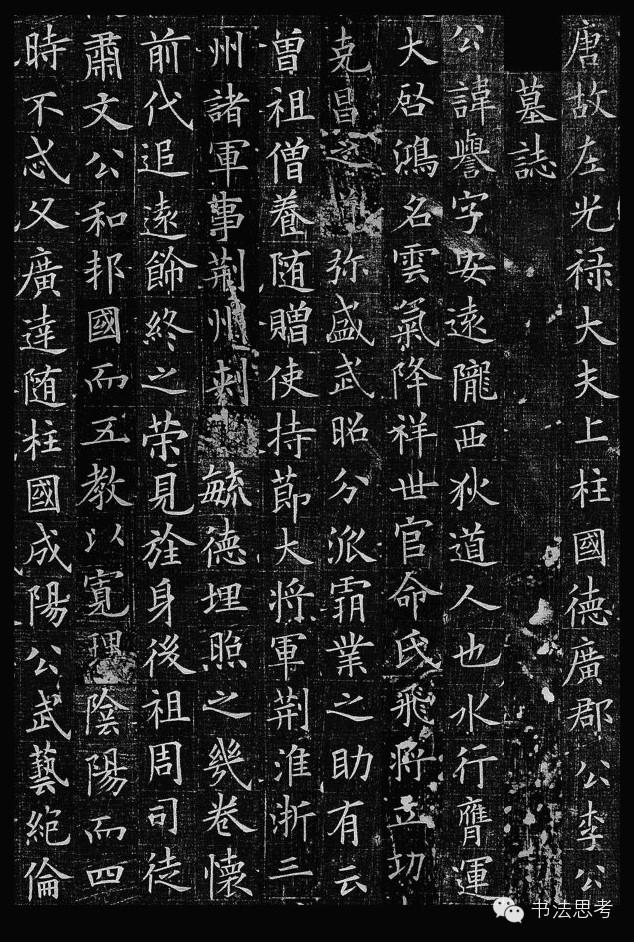 唐故左光祿大夫上柱國德廣郡公李公
墓誌
公諱譽字安遠隴西狄道人也水行膺運
大啓鴻名雲氣降祥世官命氏飛將立功
克昌之弥盛武昭分派霸業之助有云
曾祖僧養随贈使持節大将軍荆淮浙三
州諸軍事荆州刺毓德埋照之幾卷懷
前代追遠餝終之荣見旌身後祖周司徒
肅文公和邦國而五教以寬理陰陽而四
時不忒父廣達随柱國成陽公武藝絕倫
书法思考